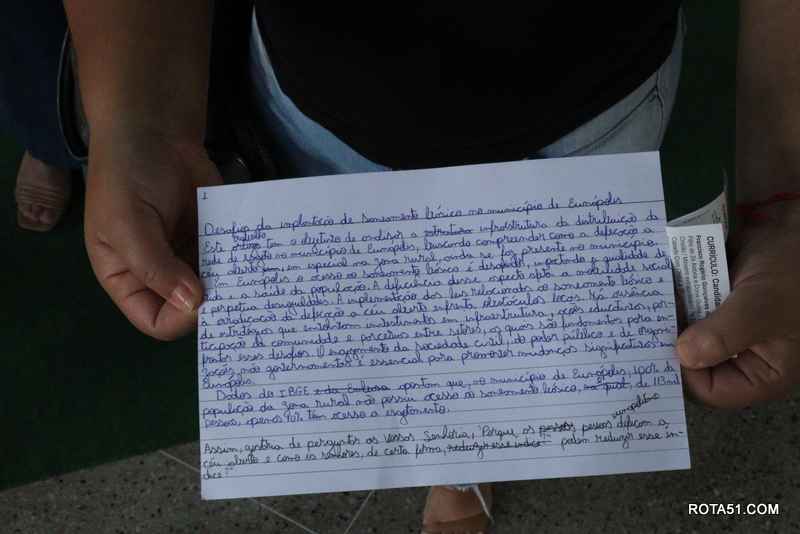 1
Desafios da implantação de saneamento básico no município de Eunápolis
Este artigo trabalho tem o objetivo de analisar a estrutura infraestrutura da distribuição da
rede de esgoto no município de Eunápolis, buscando compreender como a defecação a
céu aberto em especial na zona rural, ainda se faz presente no município.
Em Eunápolis o acesso ao saneamento básico é desigual, impactando a qualidade de
vida e a saúde da população. A deficiência desse aspecto afeta a mobilidade social
e perpetua desigualdades. A implementação das leis relacionadas ao saneamento básico e
a erradicação da defecação a céu aberto enfrenta obstáculos locais. Na ausência
de estratégias que envolvam investimentos em infraestrutura, ações educativas, par-
ticipação da comunidade e parcerias entre setores, os quais são fundamentos para en-
frentar esses desafios. O engajamento da sociedade civil, do poder público e de organi-
zações não governamentais é essencial para promover mudanças significativas em
Eunápolis.
Dados do IBGE e da Embasa apontam que, no município de Eunápolis, 100% da
população da zona rural não possui acesso ao saneamento básico, de 113 mil
pessoas, apenas 40% têm acesso a esgotamento.
eunapolitano
Assim, gostaria de perguntar as Vossas Senhoria, "Porque, as pessoas pessoas defecam a
céu aberto e como os senhores, de certa forma, reduzir esse índice?" podem reduzir esse ín-
dice?"
CURRÍCULO: Candida
Francisco Rogério Gonçalves d
ROTA51.COM